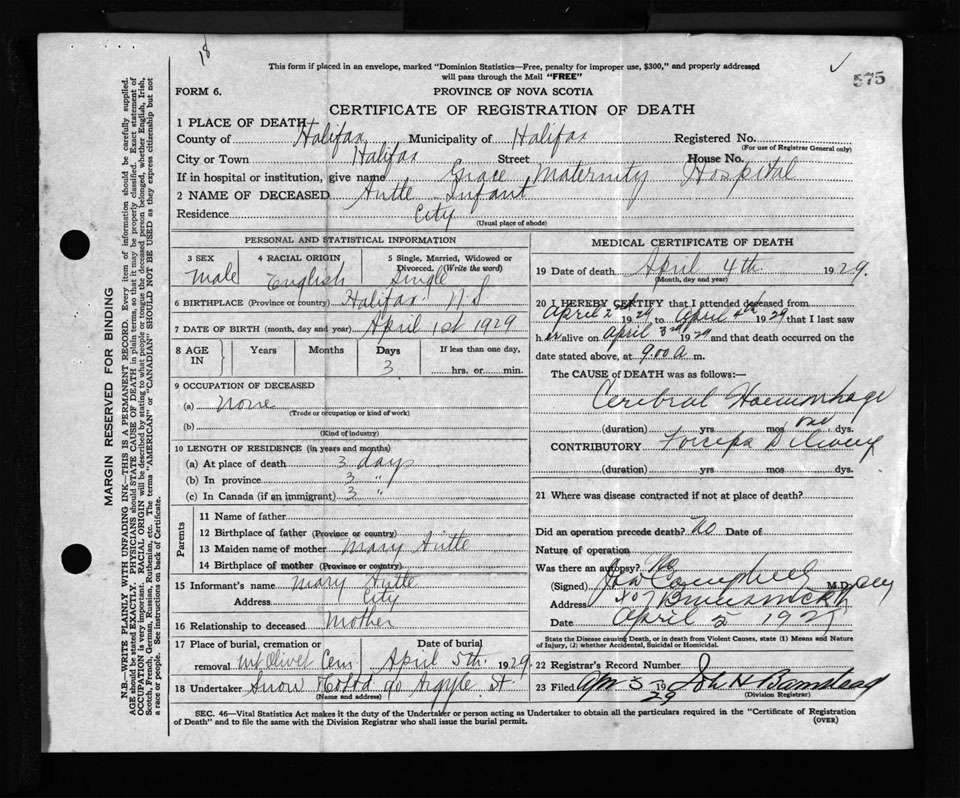 18
This form if placed in an envelope, marked "Dominion Statistics—Free, penalty for improper use, $300," and properly addressed
will pass through the Mail "FREE"
575
FORM 6.
PROVINCE OF NOVA SCOTIA
CERTIFICATE OF REGISTRATION OF DEATH
1 PLACE OF DEATH
County of Halifax Municipality of Halifax Registered No.
(For use of Registrar General only)
City or Town Halifax Street House No.
If in hospital or institution, give name Grace Maternity Hospital
2 NAME OF DECEASED Antle Infant
Residence City
(Usual place of abode)
PERSONAL AND STATISTICAL INFORMATION
3 SEX 4 RACIAL ORIGIN 5 Single, Married, Widowed or
Divorced. (Write the word)
Male English Single
6 BIRTHPLACE (Province or country) Halifax N S
7 DATE OF BIRTH (month, day and year) April 1st 1929
8 AGE IN Years Months Days If less than one day,
3 hrs. or min.
9 OCCUPATION OF DECEASED
(a) None
(Trade or occupation or kind of work)
(b)
(Kind of industry)
10 LENGTH OF RESIDENCE (in years and months)
(a) At place of death 3 days
(b) In province 3 "
(c) In Canada (if an immigrant) 3 "
Parents
11 Name of father
12 Birthplace of father (Province or country)
13 Maiden name of mother Mary Antle
14 Birthplace of mother (Province or country)
15 Informant's name Mary Antle
Address City
16 Relationship to deceased Mother
17 Place of burial, cremation or Date of burial
removal Mt Olivet Cem April 5th 1929
18 Undertaker Snow & Co Ltd 90 Argyle St
(Name and address)
MEDICAL CERTIFICATE OF DEATH
19 Date of death April 4th 1929.
(Month, day and year)
20 I HEREBY CERTIFY that I attended deceased from
April 2nd 1929 to April 4th 1929 that I last saw
h im alive on April 3rd 1929 and that death occurred on the
date stated above, at 9.00 a m.
The CAUSE of DEATH was as follows:—
Cerebral Haemorhage
(duration) yrs mos dys.
CONTRIBUTORY Forceps Delivery
(duration) yrs. mos dys.
21 Where was disease contracted if not at place of death?
Did an operation precede death? No Date of
Nature of operation
Was there an autopsy? No
(Signed) Campbell M.D.
Address 407 Brunswick
Date April 5 1929
State the Disease causing Death, or in death from Violent Causes, state (1) Means and Nature
of Injury, (2) whether Accidental, Suicidal or Homicidal.
22 Registrar's Record Number
23 Filed Apr 5 1929 John H Barnstead
(Division Registrar)
SEC. 46—Vital Statistics Act makes it the duty of the Undertaker or person acting as Undertaker to obtain all the particulars required in the "Certificate of Registration
of Death" and to file the same with the Division Registrar who shall issue the burial permit.
(OVER)
MARGIN RESERVED FOR BINDING
N.B.—WRITE PLAINLY WITH UNFADING INK—THIS IS A PERMANENT RECORD. Every item of information should be carefully supplied.
AGE should be stated EXACTLY. PHYSICIANS should STATE CAUSE OF DEATH in plain terms, so that it may be properly classified. Exact statement of
OCCUPATION is very important. RACIAL ORIGIN will be described by stating to what people or tongue the deceased person belonged, whether English, Irish,
Scotch, French, German, Russian, Ruthenian, etc. The terms "AMERICAN" or "CANADIAN" SHOULD NOT BE USED as they express citizenship but not
a race or people. See instructions on back of Certificate.